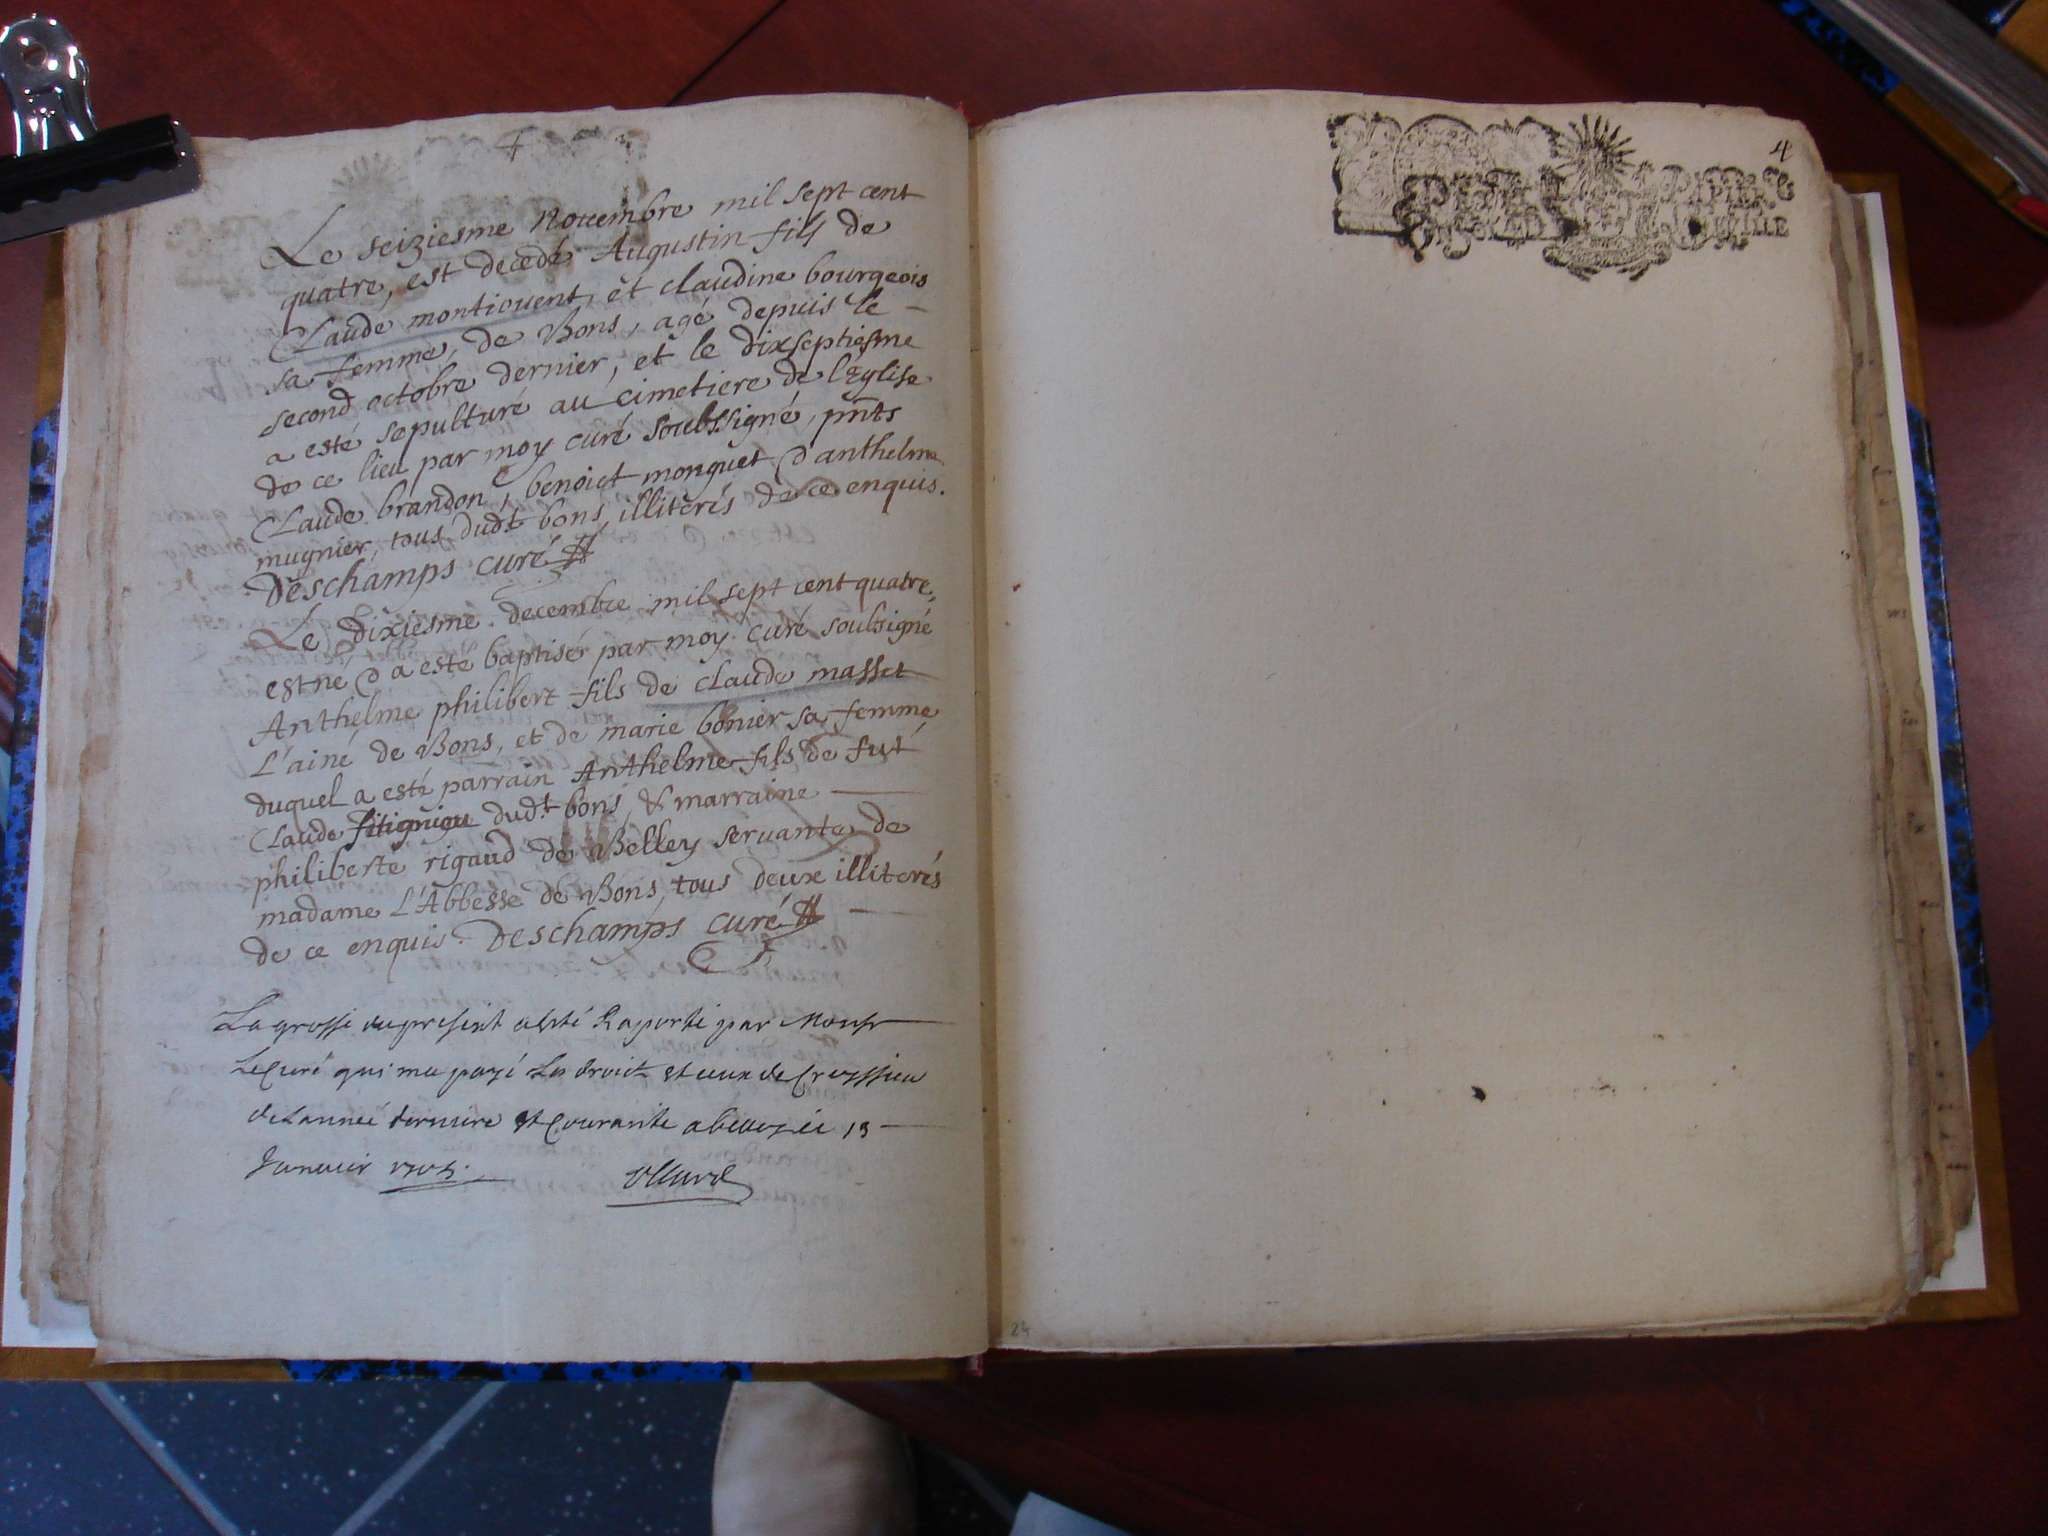 4
Le seiziesme Nouembre mil sept cent
quatre, est decedé Augustin fils de
Claude montiouent, et claudine bourgeois
sa femme, de Bons, agé depuis le
second octobre dernier, et le dixseptiesme
a esté sepulturé au cimetiere de l'Eglise
de ce lieu par moy curé soubssigné, pnts
Claude brandon, benoict monguet & anthelme
mugnier, tous dudt bons, illiterés de ce enquis.
Deschamps curé
Le dixiesme decembre mil sept cent quatre,
est né & a esté baptisé par moy curé soubsigné
Anthelme philibert fils de claude masset
L'ainé de Bons, et de marie bonier sa femme,
duquel a esté parrain Anthelme fils de fut
Claude fitigniou dudt bons, & marraine
philiberte rigaud de Belley seruante de
madame L'Abbesse de Bons, tous deux illiterés
de ce enquis. Deschamps curé
La grosse du present a esté Raporté par Monsr
Le Curé qui ma payé Les droict et ceux de Creyssieu
de Lannée derniere et Courante a belley ce 13
Januier 1705.
4
24